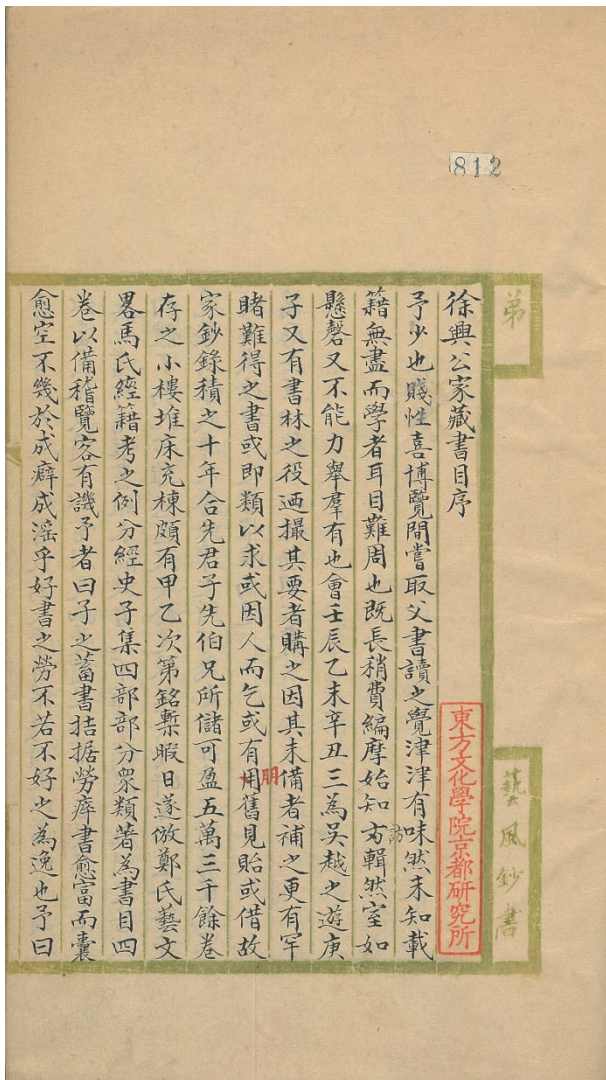 812
弟
藝風鈔書
東方文化學院京都研究所
徐興公家藏書目序
予少也賤性喜博覽間嘗取父書讀之覺津津有味然未知載
籍無盡而學者耳目難周也既長稍費編摩始知訪輯然室如
懸磬又不能力舉羣有也會壬辰乙未辛丑三為吳越之遊庚
子又有書林之役迺撮其要者購之因其未備者補之更有罕
睹難得之書或即類以求或因人而乞或有用朋舊見貽或借故
家鈔錄積之十年合先君子先伯兄所儲可盈五萬三千餘卷
存之小樓堆床充棟頗有甲乙次第銘槧暇日遂倣鄭氏藝文
畧馬氏經籍考之例分經史子集四部部分衆類著為書目四
卷以備稽覽客有譏予者曰子之蓄書拮据勞瘁書愈富而囊
愈空不幾於成癖成滛乎好書之勞不若不好之為逸也予曰